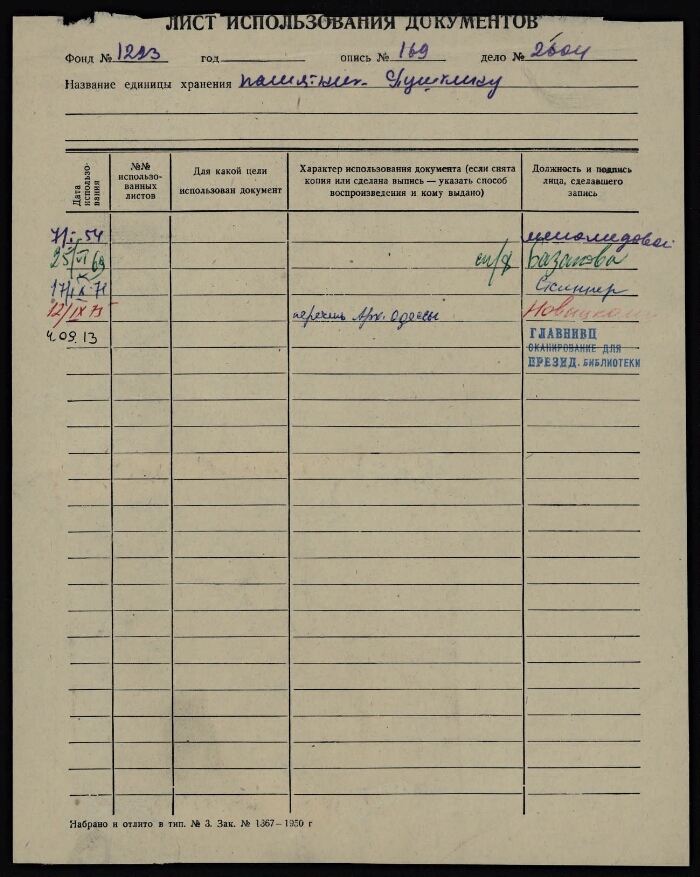 ЛИСТ ИСПОЛЬЗОВАНИЯ ДОКУМЕНТОВ
Фонд № 1293 год опись № 169 дело №
Название единицы хранения памятник Пушкину
Дата использования
№№ использованных листов
Для какой цели использован документ
Характер использования документа (если снята копия или сделана выпись — указать способ воспроизведения и кому выдано)
Должность и подпись лица, сделавшего запись
7/I-54
25/VI 69 Базанова
17/IX-71 Скиннер
12/IX 75 Арх. Одессы
4.09.13 ГЛАВНИВЦ
СКАНИРОВАНИЕ ДЛЯ
ПРЕЗИД. БИБЛИОТЕКИ
Набрано и отлито в тип. № 3. Зак. № 1367—1950 г